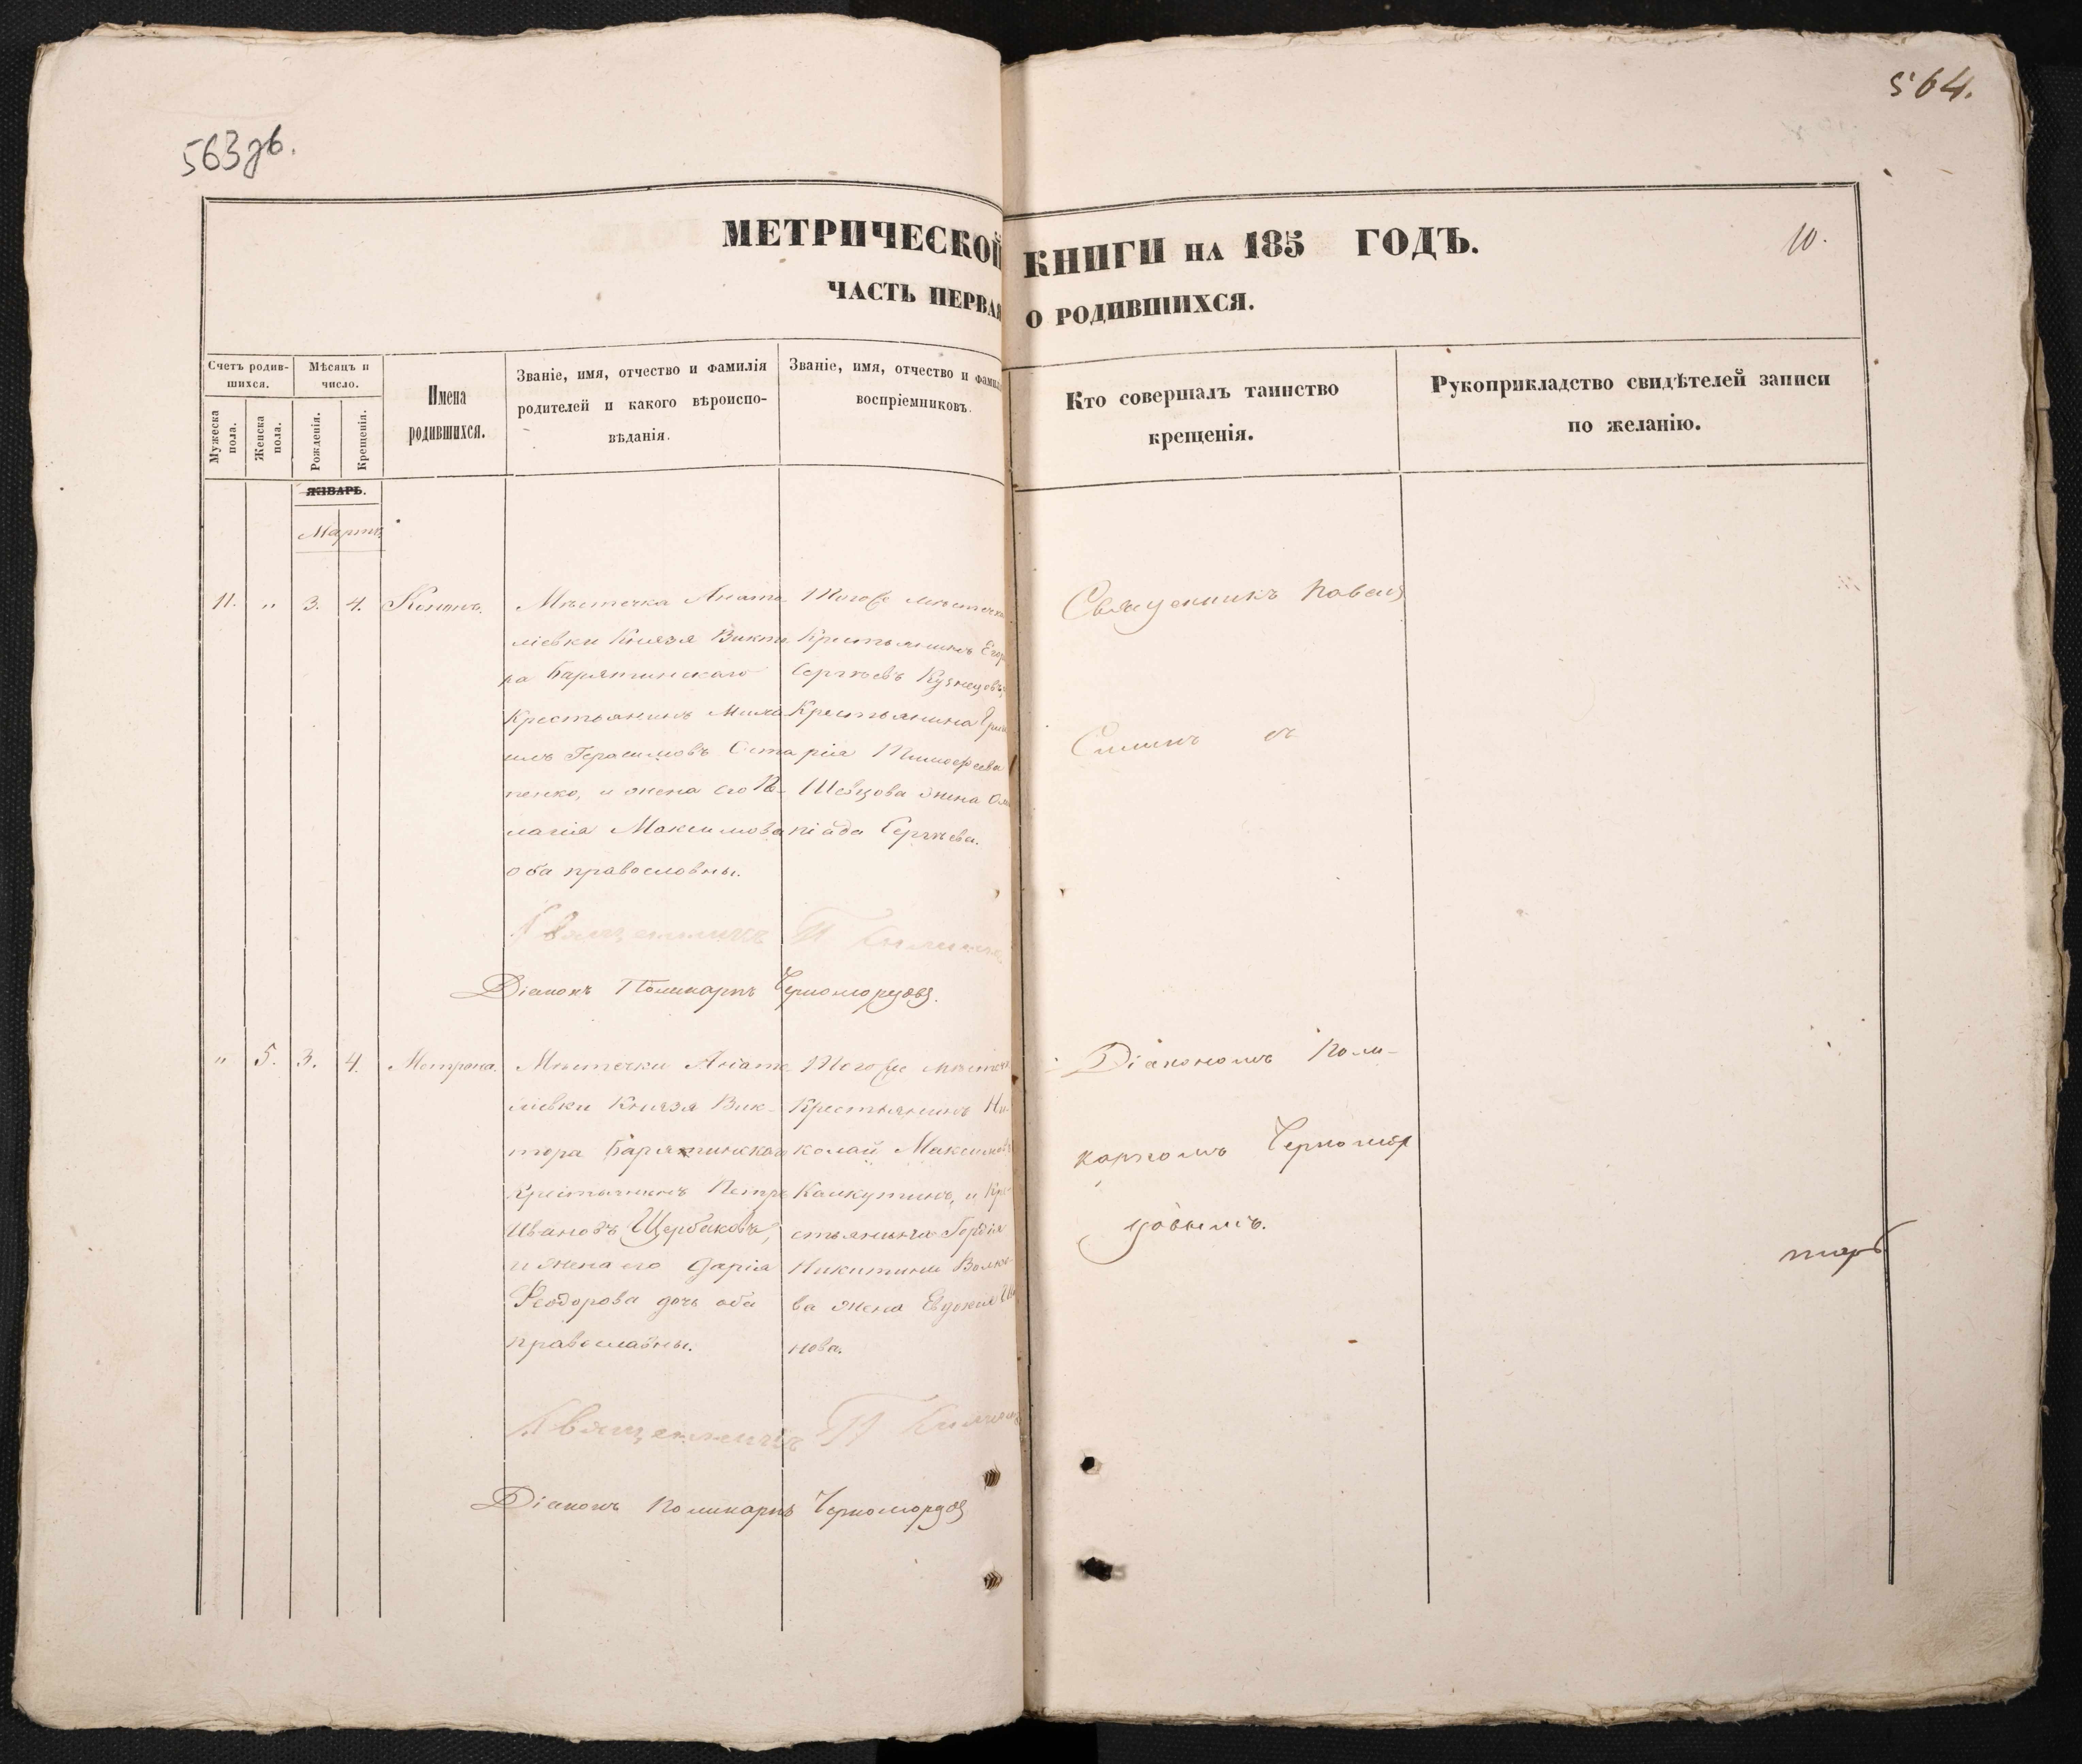 563 дв.
564.
10.
МЕТРИЧЕСКОЙ КНИГИ НА 185 ГОДЪ.
ЧАСТЬ ПЕРВАЯ О РОДИВШИХСЯ.
Счетъ родив-
шихся.
Мужеска
пола.
Женска
пола.
Мѣсяцъ и
число.
Рожденія.
Крещенія.
Имена
родившихся.
Званіе, имя, отчество и фамилія
родителей и какого вѣроиспо-
вѣданія.
Званіе, имя, отчество и фамилі
воспріемниковъ.
Кто совершалъ таинство
крещенія.
Рукоприкладство свидѣтелей записи
по желанію.
ЯНВАРЬ.
Мартъ
11. „ 3. 4. Кононъ.
Мѣстечка Анато
ліевки Князя Викто
ра Барятинскаго
Крестьянинъ Миха
илъ Герасимовъ Оста
пенко, и жена его Пе-
лагія Максимова
оба православны.
Тогоже мѣстечка
Крестьянинъ Егор
Сергѣевъ Кузнецовъ,
Крестьянина Григо
рія Тимофеева
Шевцова жена Олим
піада Сергѣева.
Священникъ Павелъ
Силинъ
Священникъ П
Діаконъ Поликарпъ Черномордовъ.
„ 5. 3. 4. Матрона.
Мѣстечки Анато
ліевки Князя Вик-
тора Барятинскаго
Крестьянинъ Петръ
Ивановъ Щербаковъ,
и жена его Дарія
Феодорова дочь оба
православны.
Тогоже мѣстечка
Крестьянинъ Ни-
колай Максимовъ
Калкутинъ, и Кре-
стьянина Гордія
Никитина Волко-
ва жена Евдокія Ива
нова.
Діакономъ Поли-
карпомъ Черномор
довымъ.
Священникъ П
Діаконъ Поликарпъ Черномордовъ